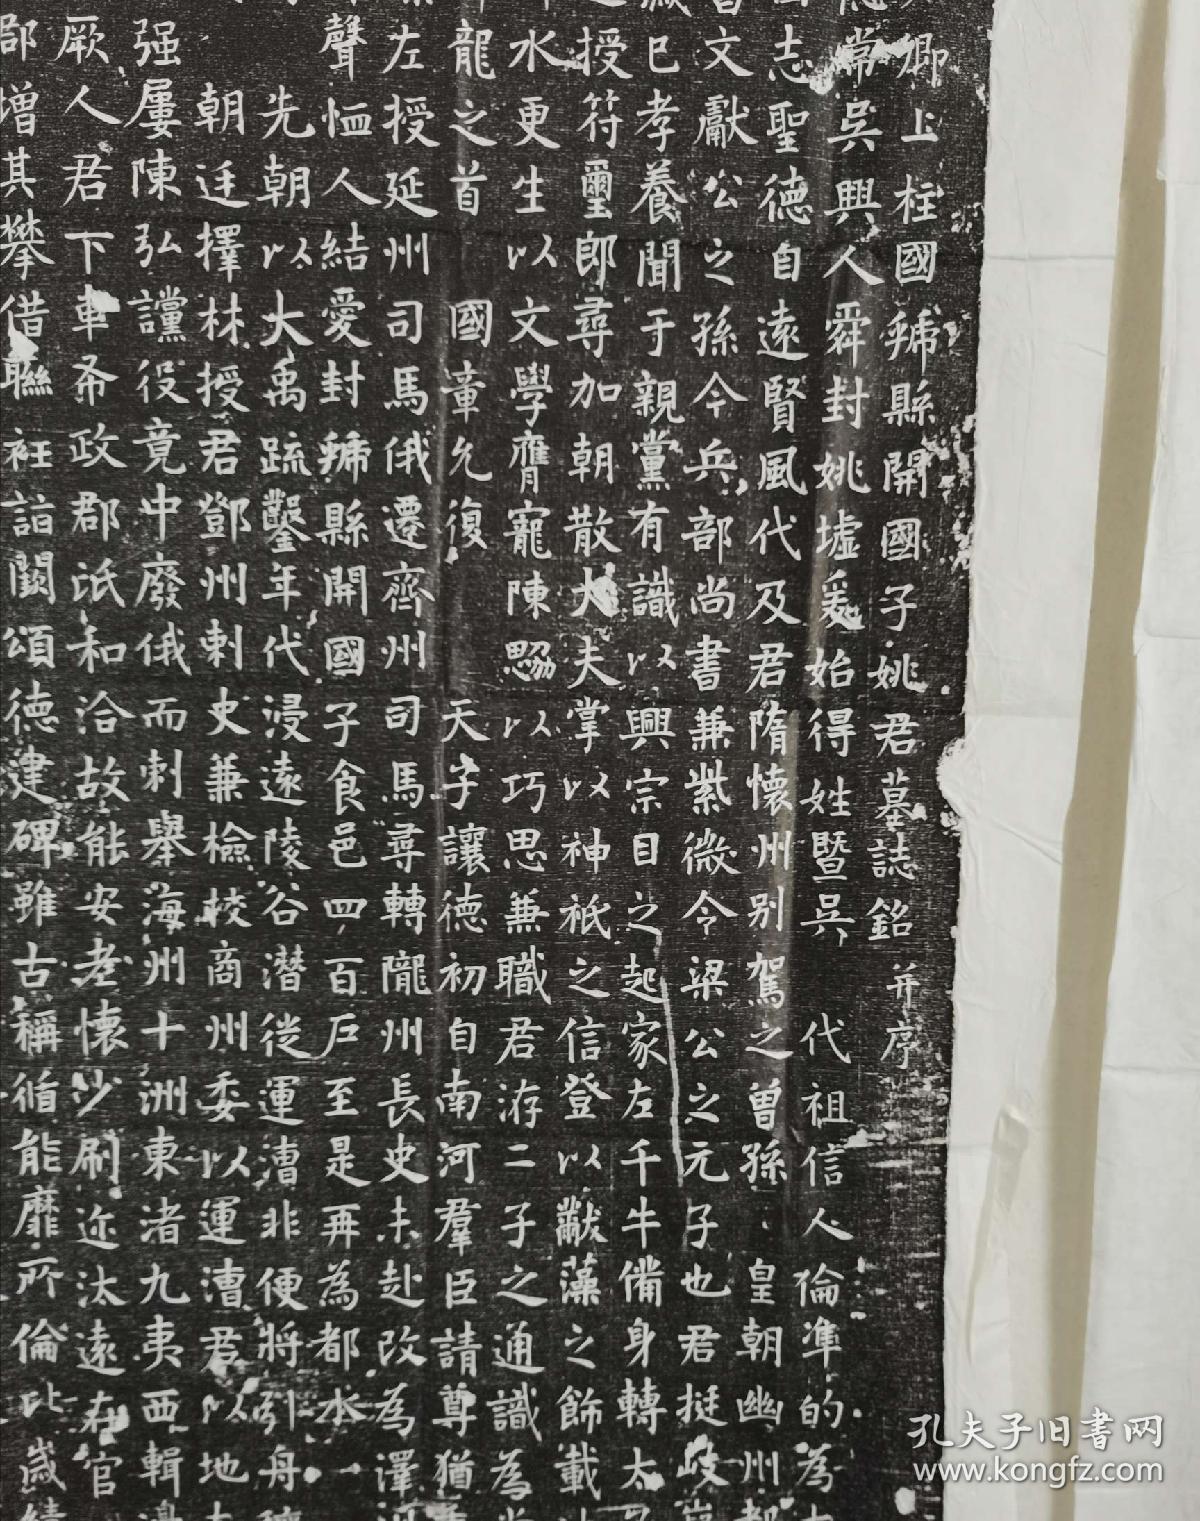 卿上柱國虢縣開國子姚君墓誌銘并序
常吳興人舜封姚墟爰始得姓暨吳代祖信人倫準的為
志聖德自遠賢風代及君隋懷州別駕之曾孫皇朝幽州都
文獻公之孫今兵部尚書兼紫微令梁公之元子也君挺岐
已孝養聞于親黨有識以興宗目之起家左千牛備身轉太
授符璽郎尋加朝散大夫掌以神祇之信登以黻藻之飾載
水更生以文學膺寵陳勰以巧思兼職君游二子之通識為
龍之首國章允復天子讓德初自南河羣臣請尊猶
左授延州司馬俄遷齊州司馬尋轉隴州長史未赴改為澤
聲恤人結愛封虢縣開國子食邑四百戶至是再為都水
先朝以大禹疏鑿年代浸遠陵谷潛徙運漕非便將引丹
朝廷擇林授君鄧州刺史兼檢校商州委以運漕君以地
强屢陳弘讜役竟中廢俄而刺舉海州十洲東渚九夷西輯
厥人君下車布政郡祇和洽故能安老懷少刷迩汰遠在官
郡增其攀借聯衽詣闕頌德建碑雖古稱循能靡所倫比歲
孔夫子旧书网
www.kongfz.com